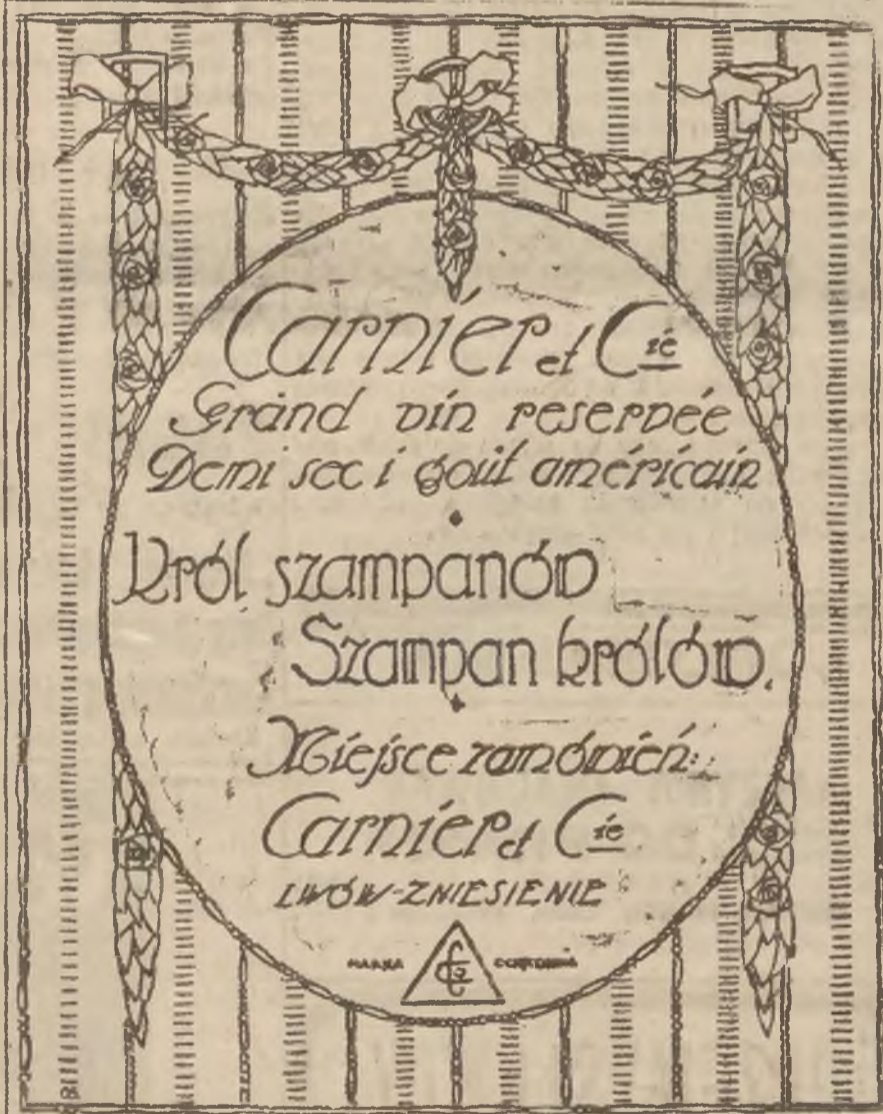 Carniér et Cie
Grand vin reservée
Demi sec i goût américain
Król szampanów
Szampan królów.
Miejsce zamówień:
Carniér et Cie
LWÓW-ZNIESIENIE
MARKA OCHRONNA